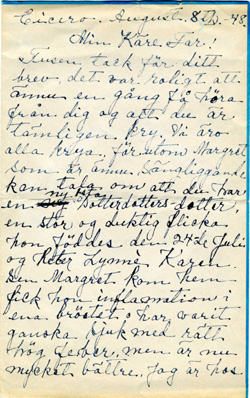 Cicero. August. 8th - 48.
Min Käre Far!
Tusen tack för ditt
brev, det var roligt att
ännu en gång få höra
från dig og att du är
tämligen kry. Vi äro
alla krya, för utom Margret
som är ännu sängliggande
kan tala om att du har
en ny Dotterdotters dotter,
en stor og duktig flicka
hon föddes den 24de Juli
og heter Lynne Karen.
Den Margret kom hem
fick hon inflamation i
ena bröstet o har varit
ganska sjuk med rätt
hög feber, men är nu
mycket bättre. Jag är hos